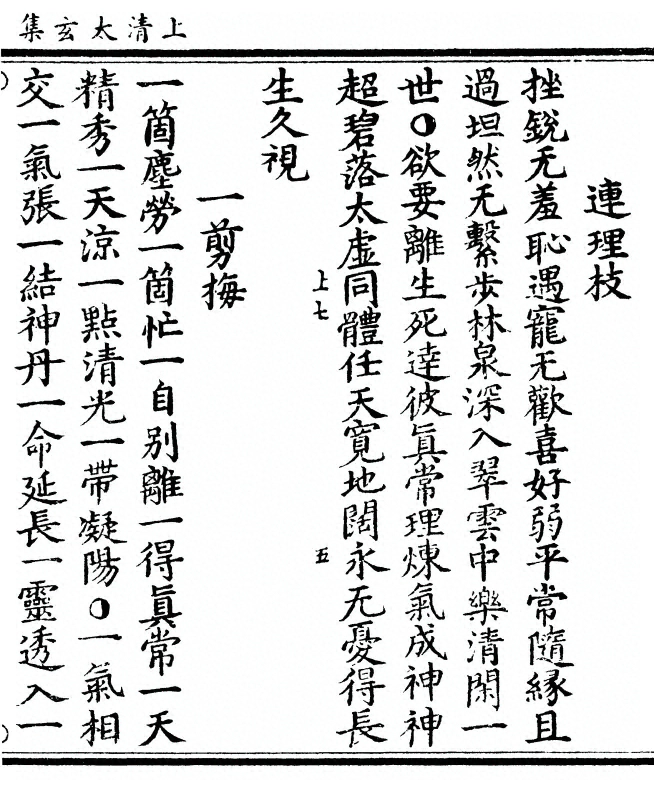 上清太玄集
連理枝
挫銳无羞恥遇寵无歡喜好弱平常隨縁且
過坦然无繫步林泉深入翠雲中樂清閑一
世○欲要離生死達彼眞常理煉氣成神神
超碧落太虚同體任天寬地闊永无憂得長
上七
五
生久視
一剪梅
一箇塵勞一箇忙一自别離一得眞常一天
精秀一天涼一點清光一帶凝陽○一氣相
交一氣張一結神丹一命延長一靈透入一